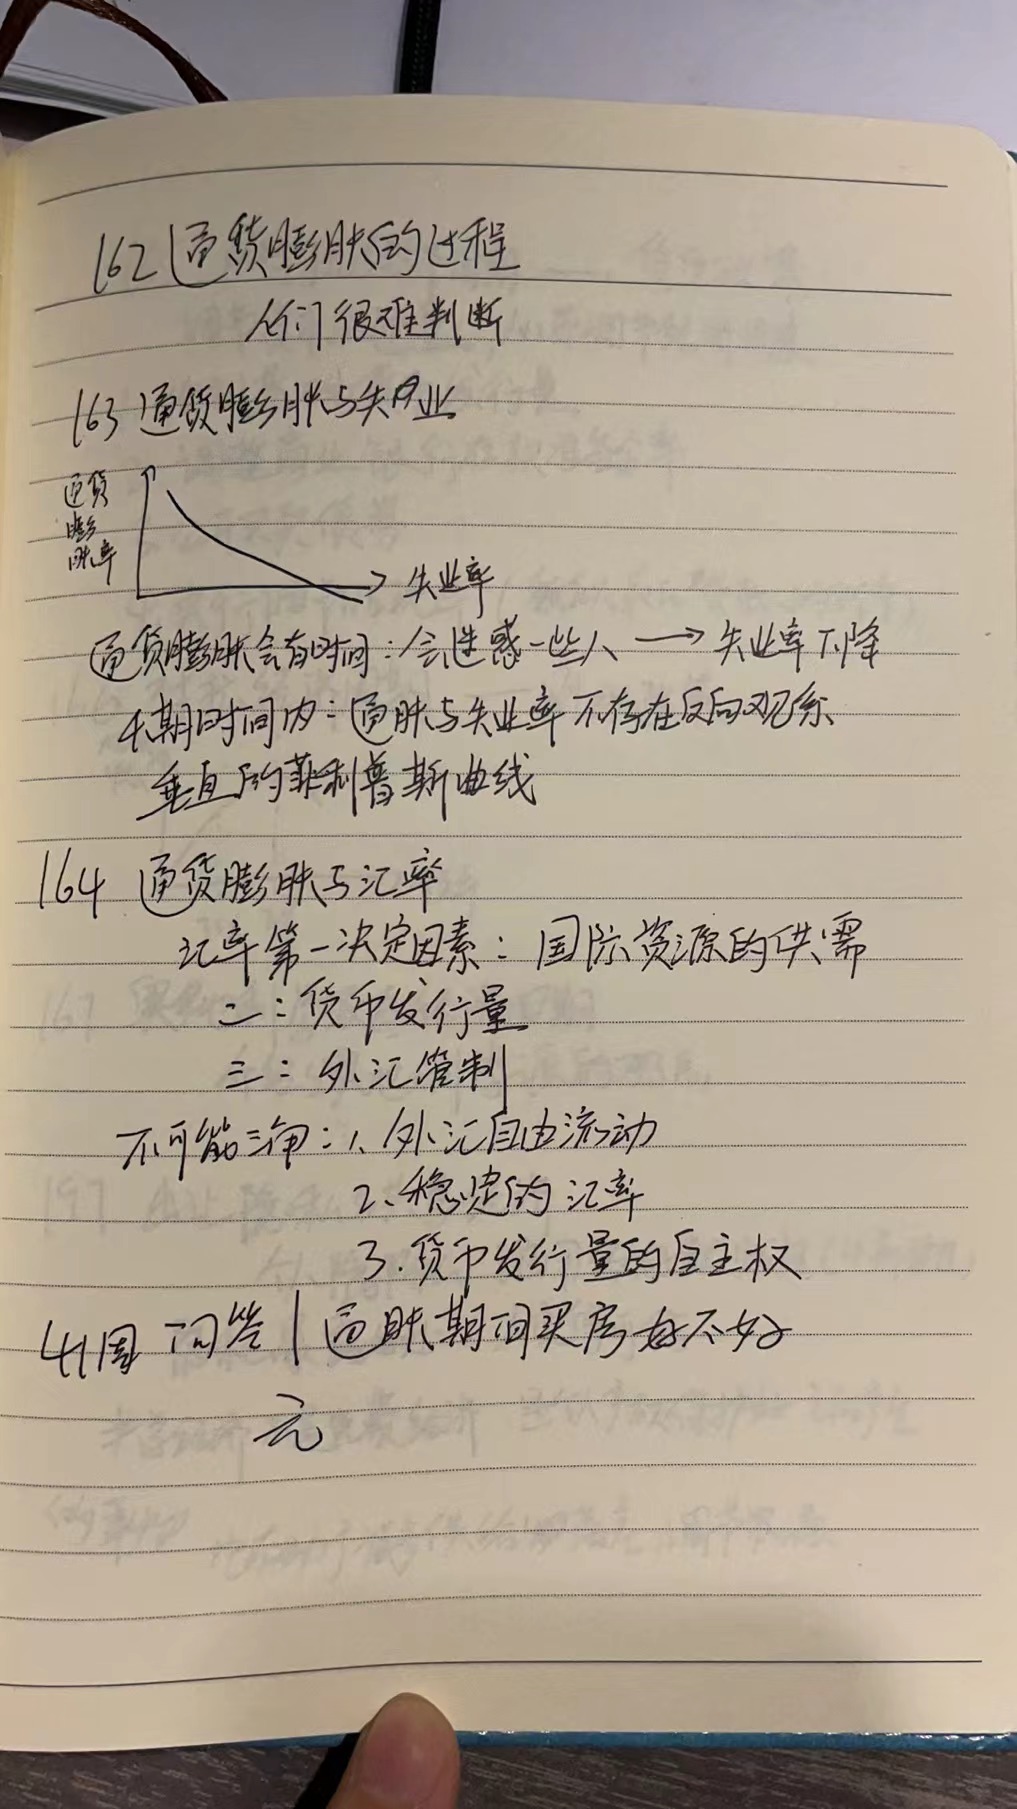 162 通货膨胀的过程
人们很难判断
163 通货膨胀与失业
通货
膨
胀率
失业率
通货膨胀会有时间:会迷惑一些人 → 失业率下降
长期时间内:通胀与失业率不存在反向关系
垂直的菲利普斯曲线
164 通货膨胀与汇率
汇率第一决定因素:国际资源的供需
二:货币发行量
三:外汇管制
不可能三角:1、外汇自由流动
2、稳定的汇率
3.货币发行量的自主权
41周 问答|通胀期间买房好不好